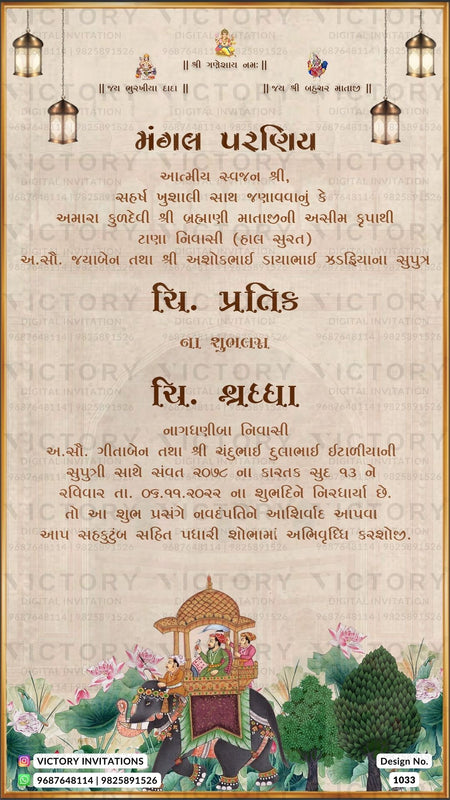 || શ્રી ગણેશાય નમઃ ||
|| જય ભુરખીયા દાદા || || જય શ્રી બહુચર માતાજી ||
મંગલ પરણિય
આત્મીય સ્વજન શ્રી,
સહર્ષ ખુશાલી સાથ જણાવવાનું કે
અમારા કુળદેવી શ્રી બ્રહ્માણી માતાજીની અસીમ કૃપાથી
ટાણા નિવાસી (હાલ સુરત)
અ.સૌ. જયાબેન તથા શ્રી અશોકભાઈ ડાયાભાઈ ઝડફિયાના સુપુત્ર
ચિ. પ્રતિક
ના શુભલગ્ન
ચિ. શ્રધ્ધા
નાગધણીબા નિવાસી
અ.સૌ. ગીતાબેન તથા શ્રી ચંદુભાઈ દુલાભાઈ ઈટાળીયાની
સુપુત્રી સાથે સંવત ૨૦૭૮ ના કારતક સુદ ૧૩ ને
રવિવાર તા. ૦૬.૧૧.૨૦૨૨ ના શુભદિને નિરધાર્યા છે.
તો આ શુભ પ્રસંગે નવદંપતિને આશિર્વાદ આપવા
આપ સહકુટુંબ સહિત પધારી શોભામાં અભિવૃધ્ધિ કરશોજી.
VICTORY INVITATIONS
9687648114 | 9825891526
Design No.
1033
VICTORY
DIGITAL INVITATION
9687648114 | 9825891526